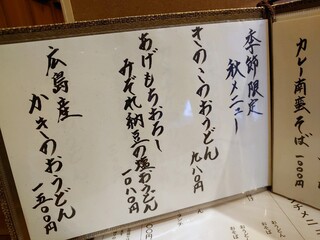 季節限定
秋メニュー
きのこのおうどん
九八〇円
あげもちおろし
みぞれ納豆の塩おうどん
一〇八〇円
広島産
かきのおうどん
一五〇〇円
カレー南蛮そば
一〇〇〇円